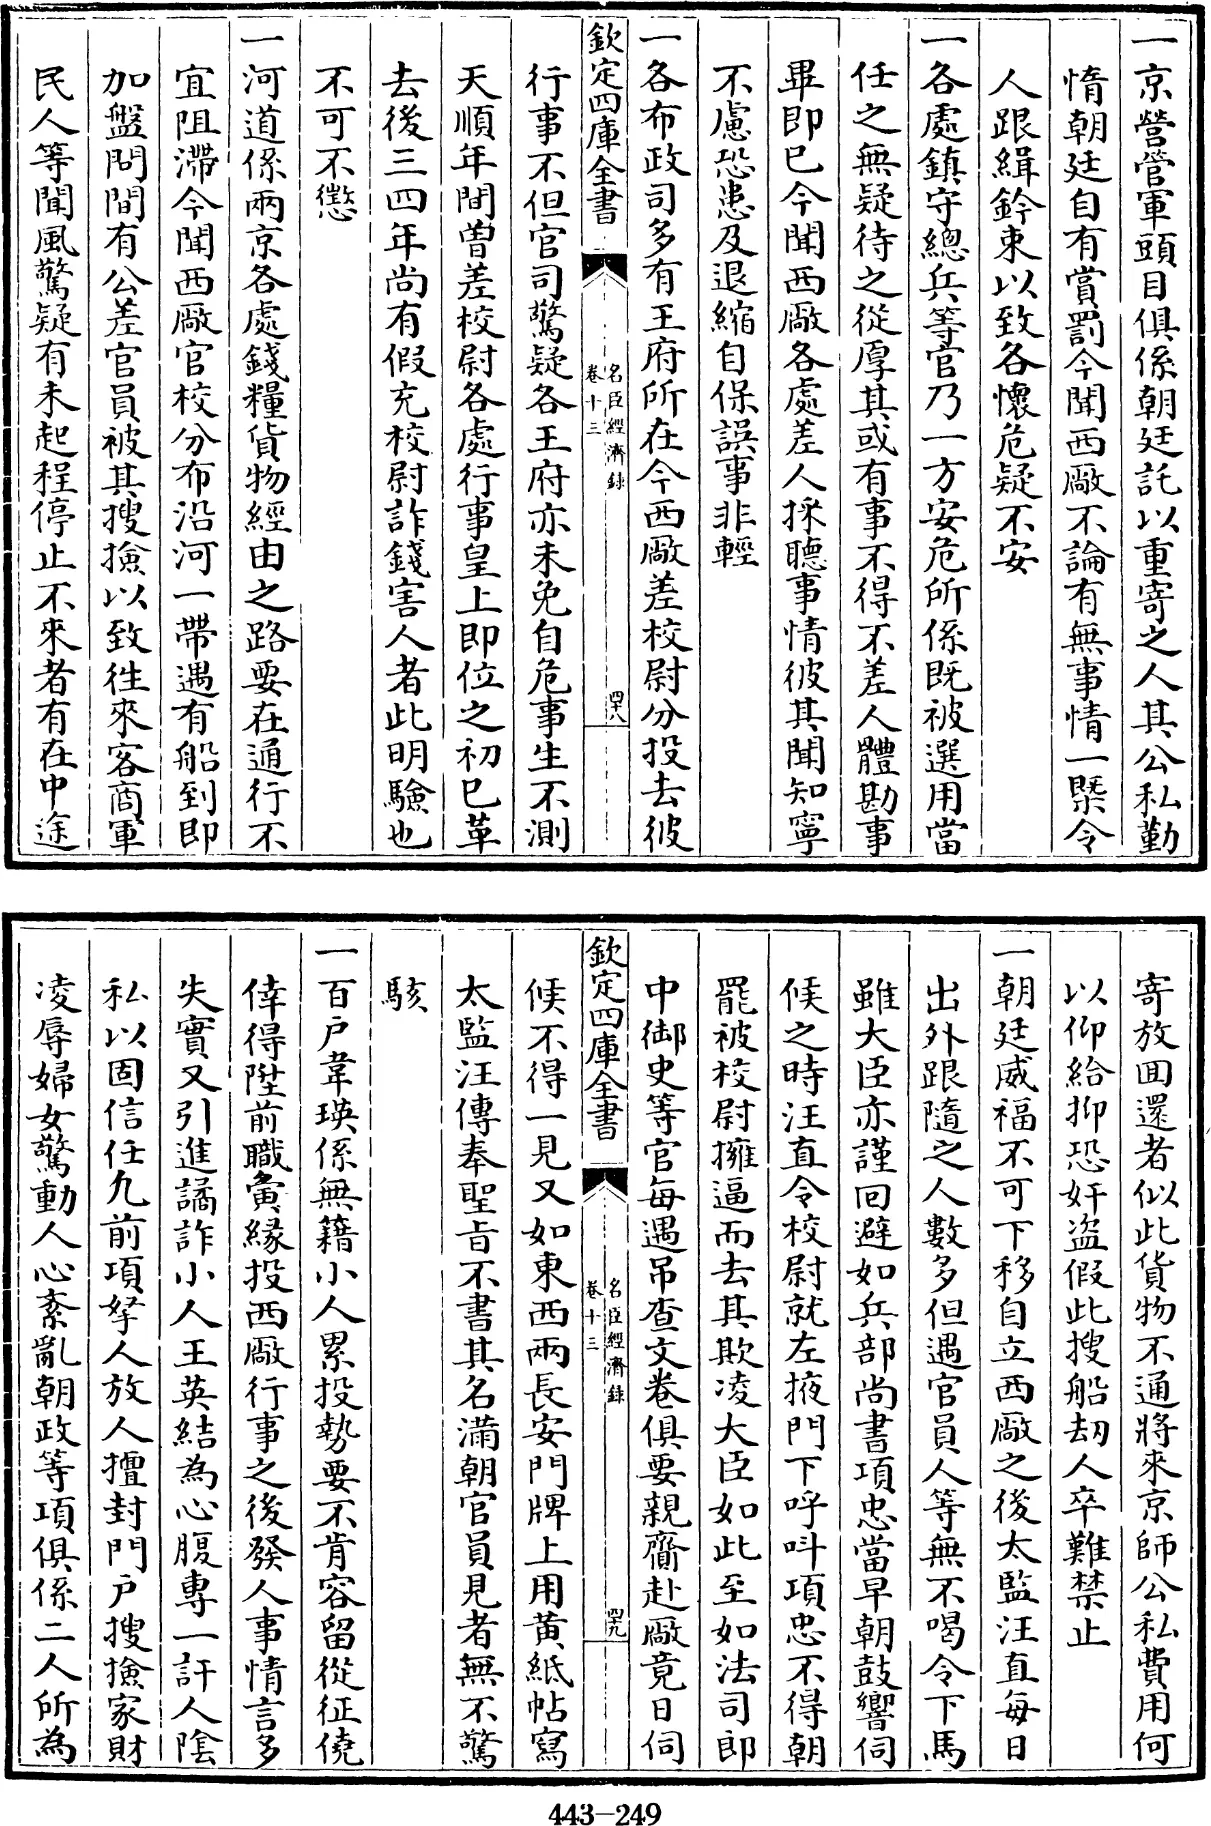 一京營管軍頭目俱係朝廷託以重寄之人其公私勤
惰朝廷自有賞罰今聞西厰不論有無事情一槩令
人跟緝鈐束以致各懷危疑不安
一各處鎮守總兵等官乃一方安危所係既被選用當
任之無疑待之從厚其或有事不得不差人體勘事
畢即已今聞西厰各處差人採聽事情彼其聞知寧
不慮恐患及退縮自保誤事非輕
一各布政司多有王府所在今西厰差校尉分投去彼
欽定四庫全書
名臣經濟錄
卷十三
四十八
行事不但官司驚疑各王府亦未免自危事生不測
天順年間曽差校尉各處行事皇上即位之初已革
去後三四年尚有假充校尉詐錢害人者此明驗也
不可不懲
一河道係兩京各處錢糧貨物經由之路要在通行不
宜阻滯今聞西厰官校分布沿河一帶遇有船到即
加盤問間有公差官員被其搜撿以致徃來客商軍
民人等聞風驚疑有未起程停止不來者有在中途
寄放囬還者似此貨物不通將來京師公私費用何
以仰給抑恐奸盗假此搜船刼人卒難禁止
一朝廷威福不可下移自立西厰之後太監汪直每日
出外跟隨之人數多但遇官員人等無不喝令下馬
雖大臣亦謹回避如兵部尚書項忠當早朝鼓響伺
候之時汪直令校尉就左掖門下呼呌項忠不得朝
罷被校尉擁逼而去其欺凌大臣如此至如法司郎
中御史等官每遇吊查文卷俱要親齎赴厰竟日伺
欽定四庫全書
名臣經濟錄
卷十三
四十九
候不得一見又如東西兩長安門牌上用黄紙帖寫
太監汪傳奉聖旨不書其名滿朝官員見者無不驚
駭
一百户韋瑛係無籍小人累投勢要不肯容留從征僥
倖得陞前職夤縁投西厰行事之後發人事情言多
失實又引進譎詐小人王英結為心腹專一訐人隂
私以固信任凢前項拏人放人擅封門户搜撿家財
凌辱婦女驚動人心紊亂朝政等項俱係二人所為
443-249